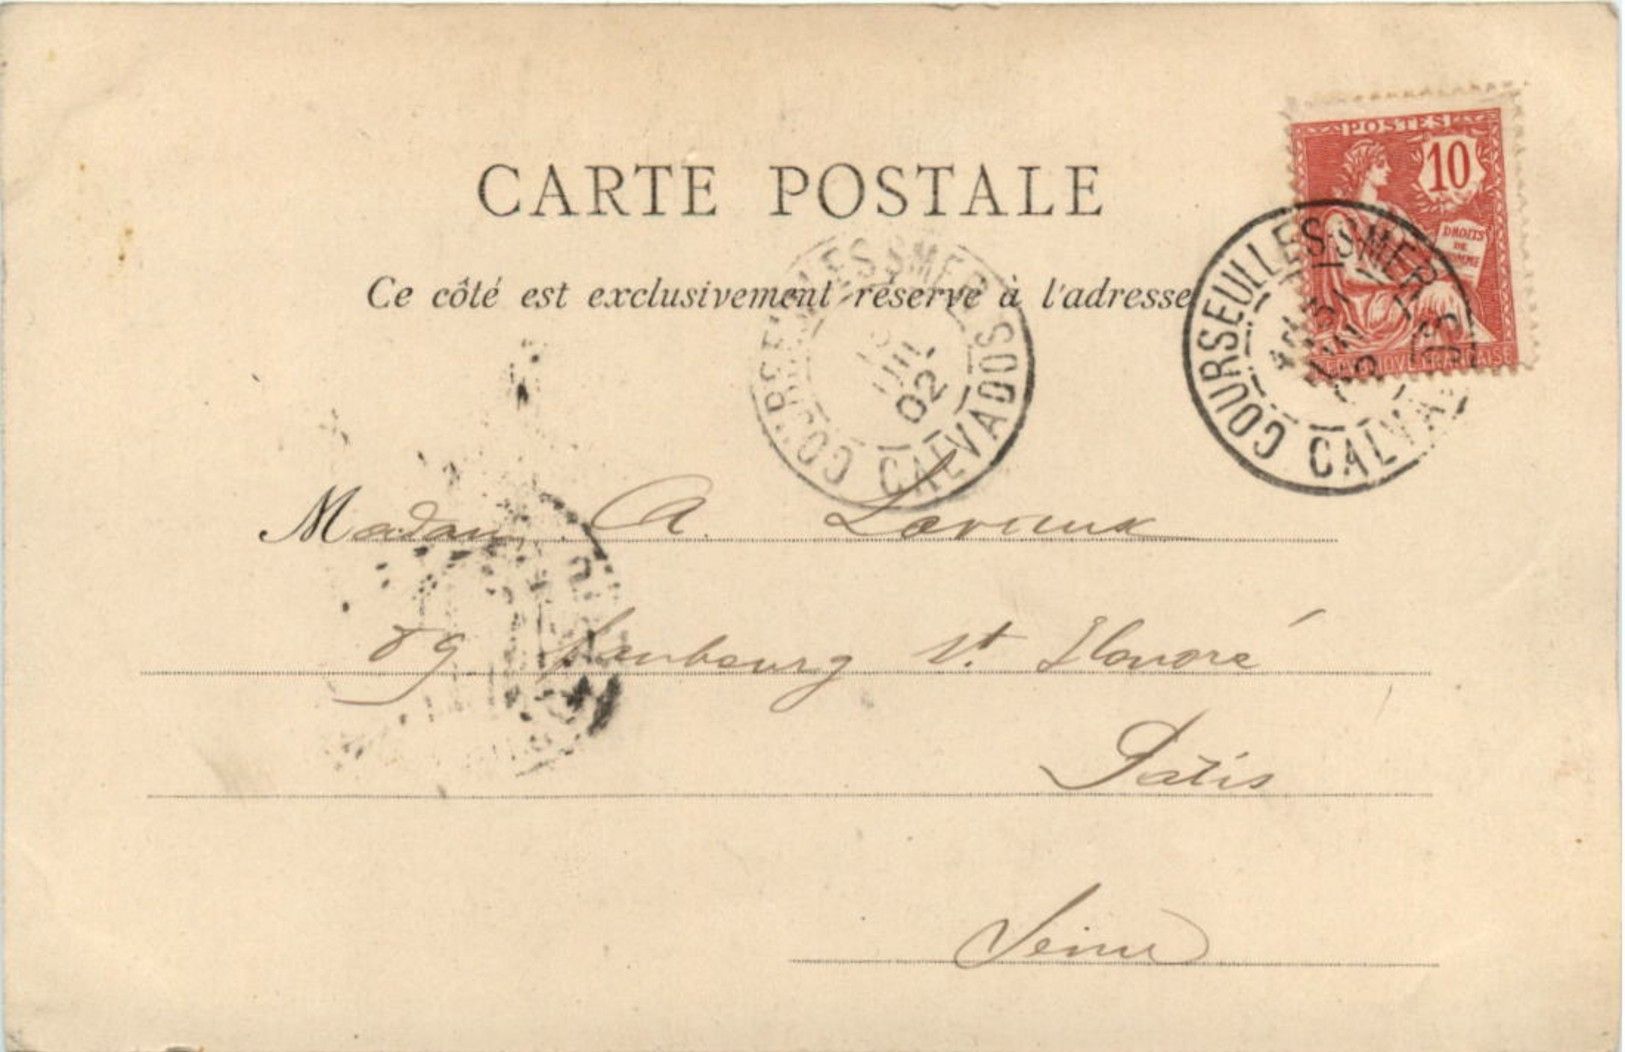 CARTE POSTALE
Ce côté est exclusivement réservé à l'adresse
POSTES
10
DROITS
DE
COURSEULLES-S-MER
CALVADOS
COURSEULLES-S-MER
JUIL
02
CALVADOS
Madame A.
89 faubourg St. Honoré
Paris
Seine